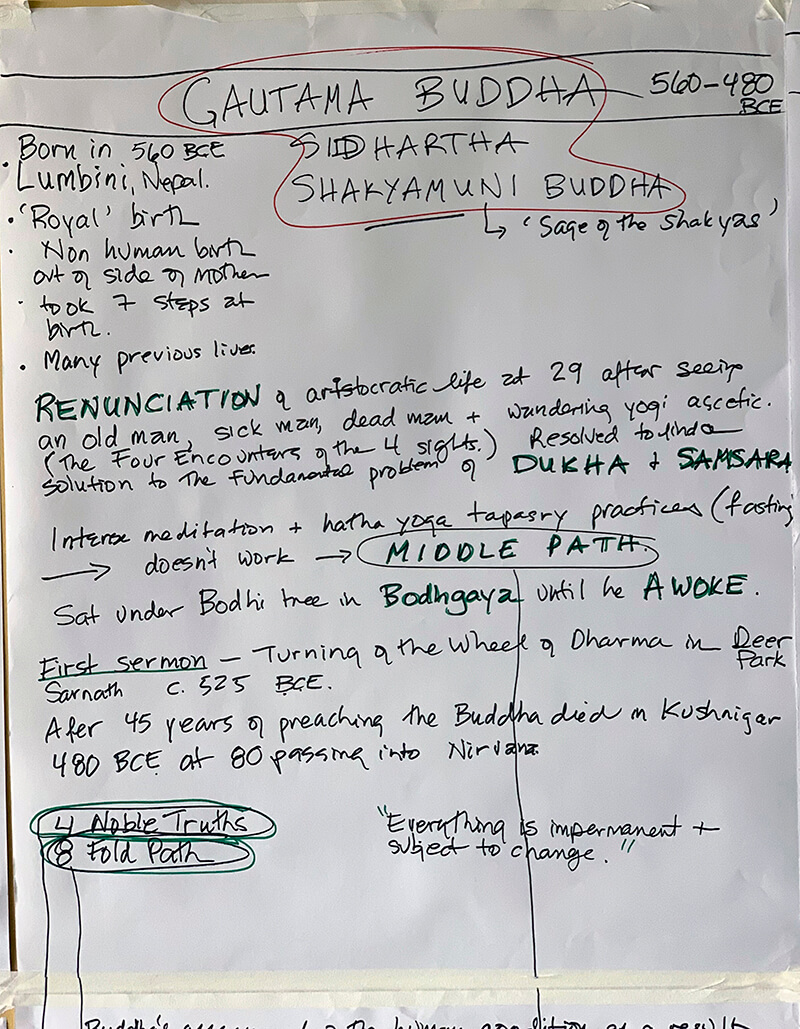 GAUTAMA BUDDHA
560-480 BCE
SIDHARTHA
SHAKYAMUNI BUDDHA
↳ 'Sage of the Shakyas'
• Born in 560 BCE
Lumbini, Nepal.
• 'Royal' birth
• Non human birth
out of side of mother
• took 7 steps at
birth.
• Many previous lives.
RENUNCIATION of aristocratic life at 29 after seeing
an old man, sick man, dead man + wandering yogi ascetic.
(The Four Encounters of the 4 sights.) Resolved to find a
solution to the fundamental problem of DUKHA + SAMSARA
Intense meditation + hatha yoga tapasry practices (fasting)
→ doesn't work → MIDDLE PATH.
Sat under Bodhi tree in Bodhgaya until he AWOKE.
First sermon – Turning of the Wheel of Dharma in Deer Park
Sarnath c. 525 BCE.
Afer 45 years of preaching the Buddha died in Kushnigar
480 BCE at 80 passing into Nirvana
4 Noble Truths
8 Fold Path
"Everything is impermanent +
subject to change."
Buddha's the human condition as a result